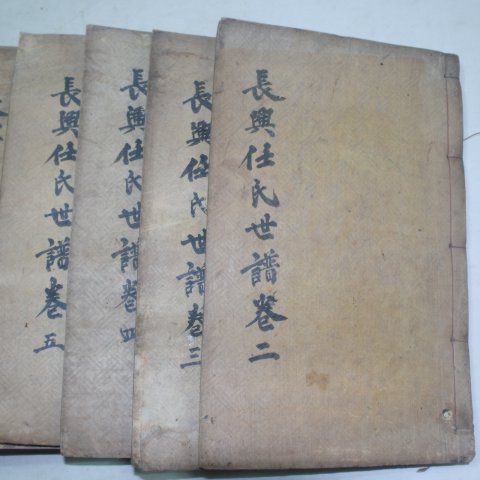 長興任氏世譜卷二
長興任氏世譜卷三
長興任氏世譜卷四
長興任氏世譜卷五